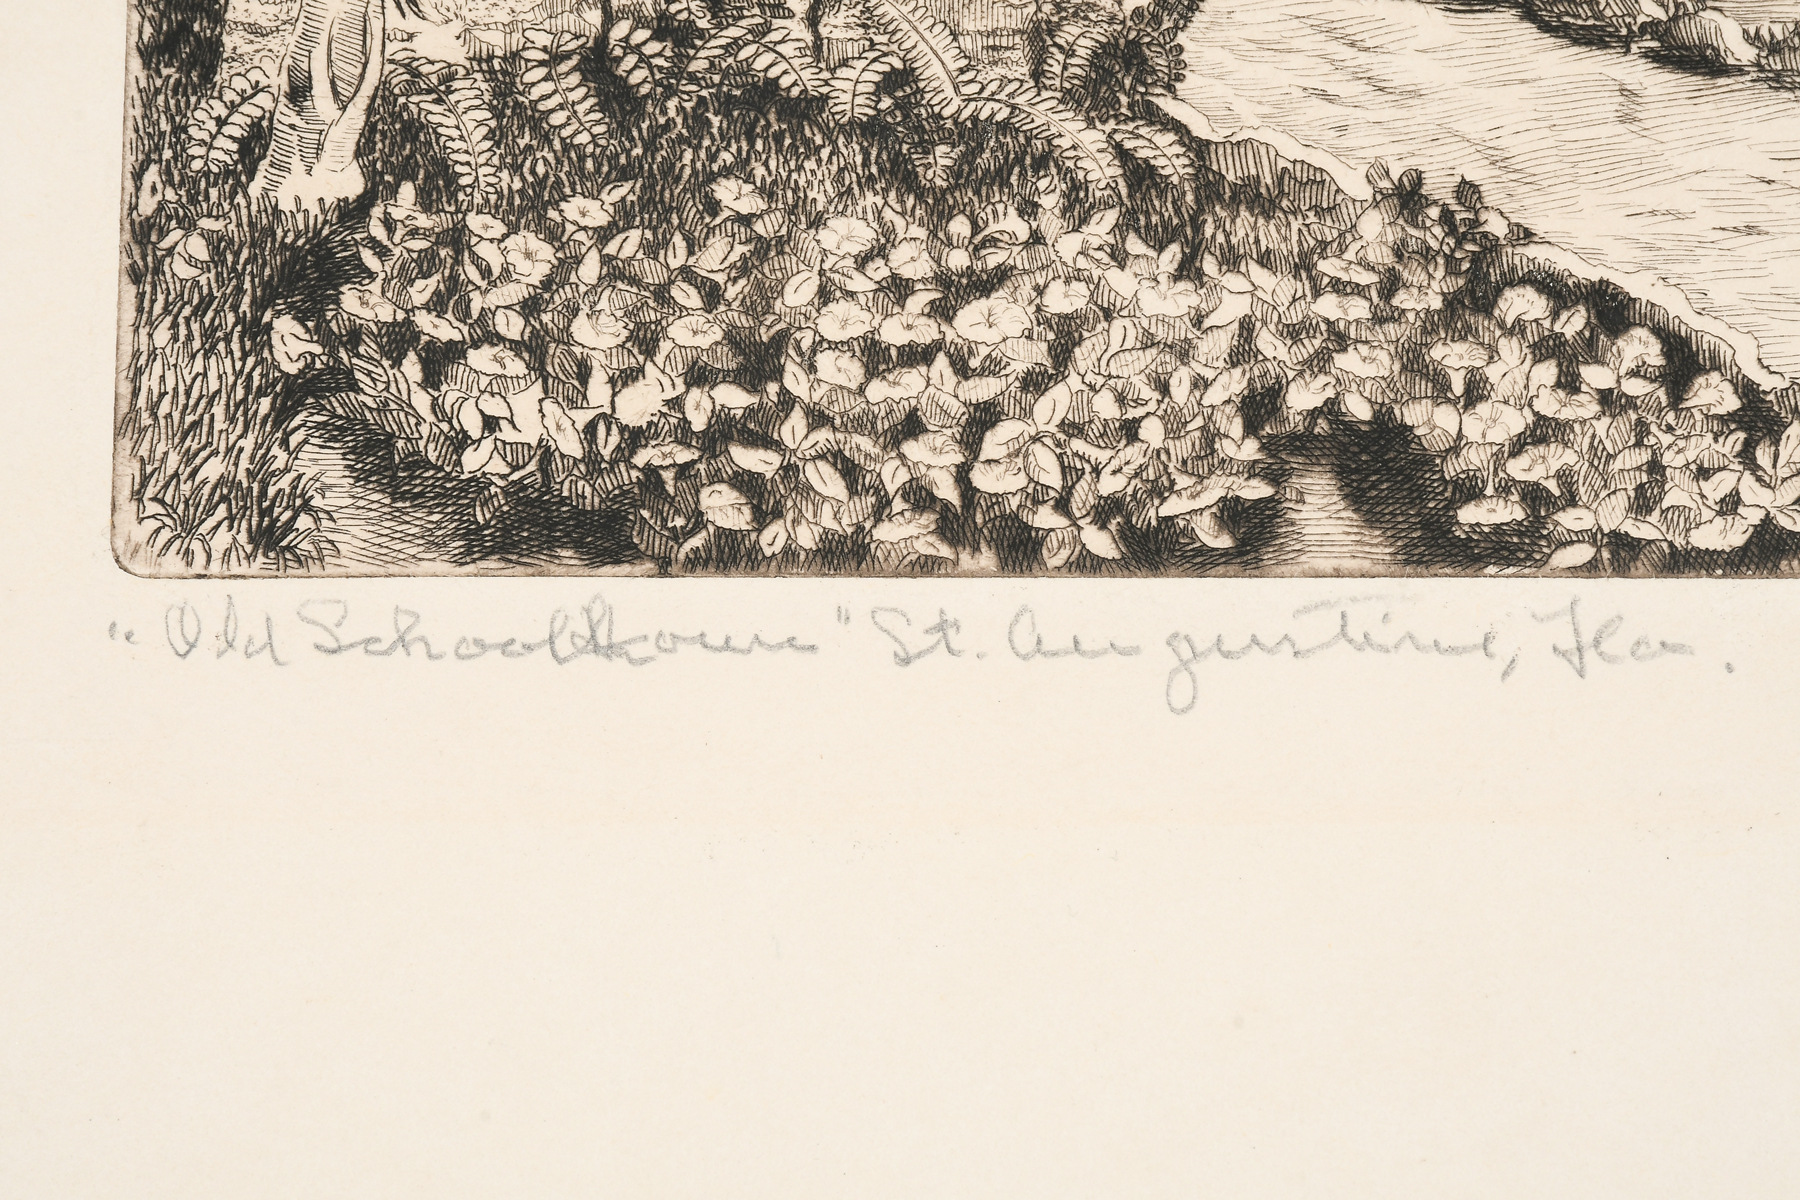 "Old Schoolhouse" St. Augustine, Fla.